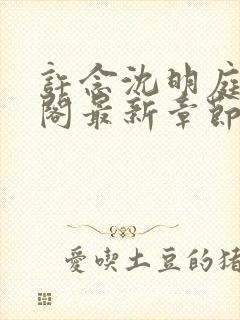 許念沈明庭
閣最新章節
愛喫土豆的猪